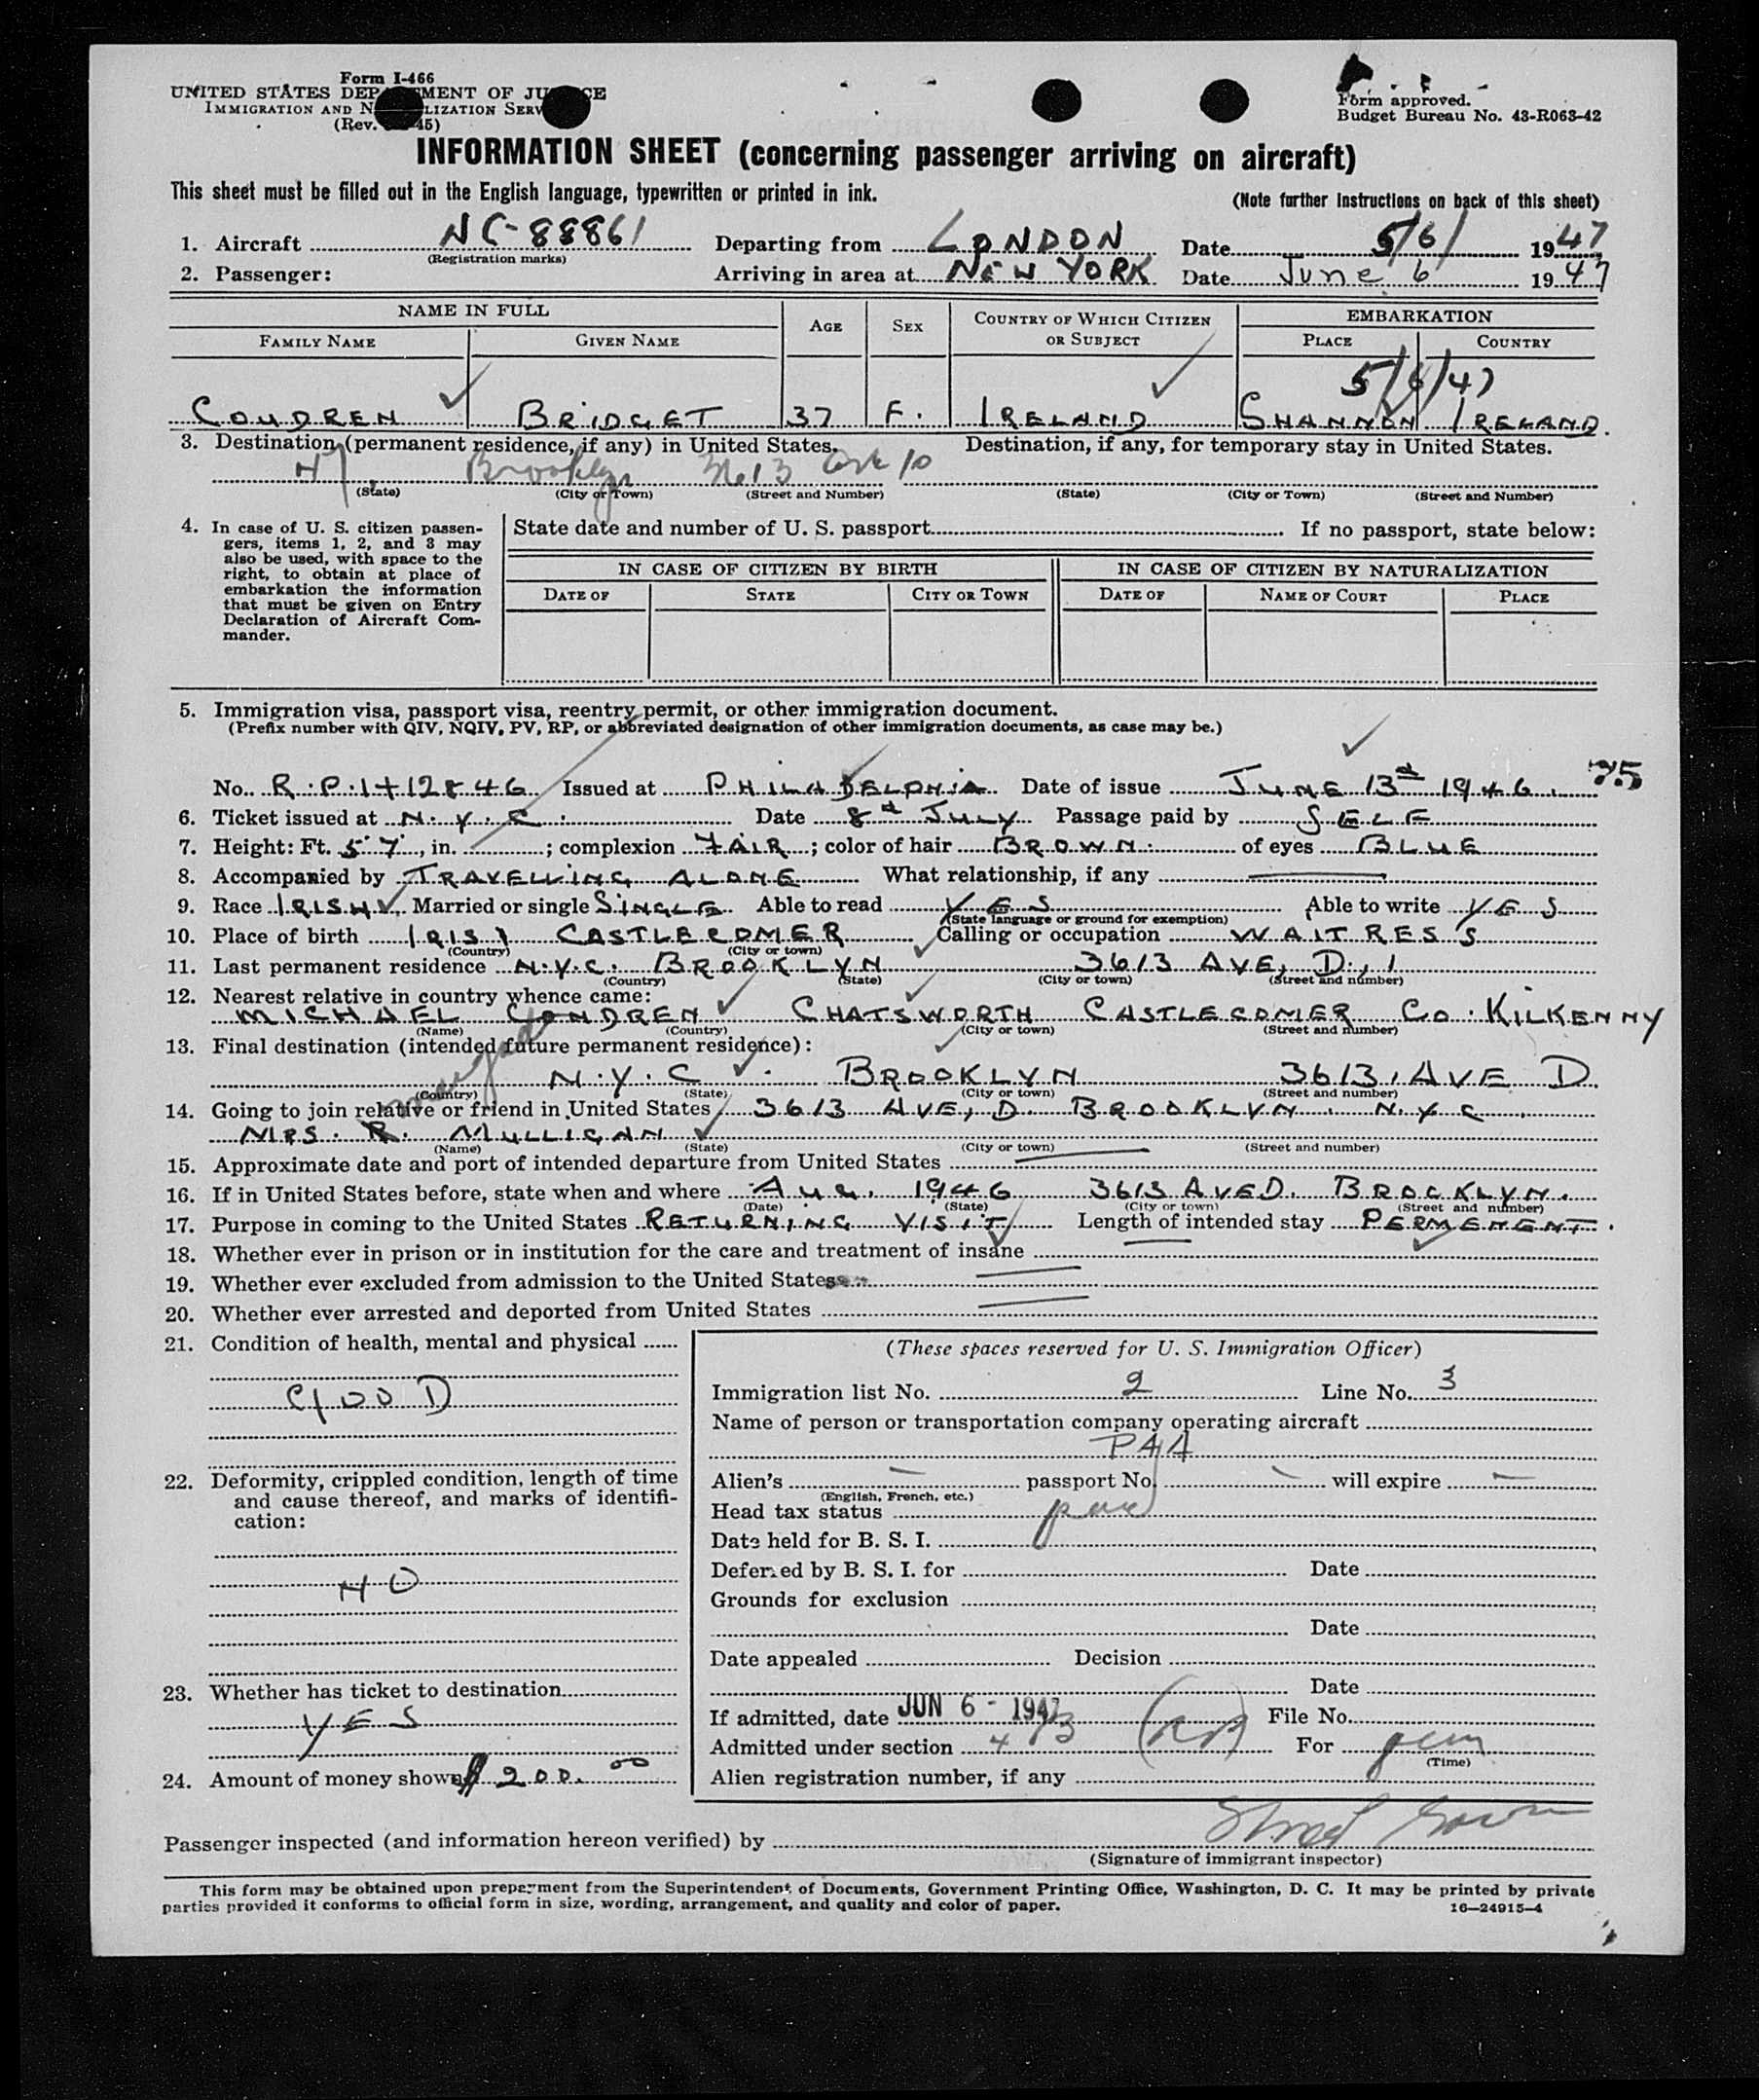 Form I-466
UNITED STATES DEPARTMENT OF JUSTICE
IMMIGRATION AND NATURALIZATION SERV
(Rev. 45)
Form approved.
Budget Bureau No. 43-R063-42
INFORMATION SHEET (concerning passenger arriving on aircraft)
This sheet must be filled out in the English language, typewritten or printed in ink.
(Note further instructions on back of this sheet)
1. Aircraft NC-88861 Departing from LONDON Date 5/6/ 1947
(Registration marks)
2. Passenger: Arriving in area at NEW YORK Date June 6 1947
NAME IN FULL AGE SEX COUNTRY OF WHICH CITIZEN OR SUBJECT EMBARKATION
FAMILY NAME GIVEN NAME PLACE COUNTRY
5/6/47
COUDREN BRIDGET 37 F. IRELAND SHANNON IRELAND.
3. Destination (permanent residence, if any) in United States. Destination, if any, for temporary stay in United States.
NY Brooklyn 3613
(State) (City or Town) (Street and Number) (State) (City or Town) (Street and Number)
4. In case of U. S. citizen passengers, items 1, 2, and 3 may also be used, with space to the right, to obtain at place of embarkation the information that must be given on Entry Declaration of Aircraft Commander.
State date and number of U. S. passport If no passport, state below:
IN CASE OF CITIZEN BY BIRTH IN CASE OF CITIZEN BY NATURALIZATION
DATE OF STATE CITY OR TOWN DATE OF NAME OF COURT PLACE
5. Immigration visa, passport visa, reentry permit, or other immigration document.
(Prefix number with QIV, NQIV, PV, RP, or abbreviated designation of other immigration documents, as case may be.)
No. R.P.1412846 Issued at PHILADELPHIA Date of issue JUNE 13d 1946. 75
6. Ticket issued at N.Y.C. Date 8d JULY Passage paid by SELF
7. Height: Ft. 5 7, in. ; complexion FAIR; color of hair BROWN. of eyes BLUE
8. Accompanied by TRAVELLING ALONE What relationship, if any —
9. Race IRISH Married or single SINGLE Able to read YES Able to write YES
(State language or ground for exemption)
10. Place of birth IRISH CASTLECOMER Calling or occupation WAITRESS
(Country) (City or town)
11. Last permanent residence N.Y.C. BROOKLYN 3613 AVE, D., 1
(Country) (State) (City or town) (Street and number)
12. Nearest relative in country whence came:
MICHAEL CONDREN CHATSWORTH CASTLECOMER CO. KILKENNY
(Name) (Country) (City or town) (Street and number)
13. Final destination (intended future permanent residence):
N.Y.C. BROOKLYN 3613, AVE D.
(Country) (State) (City or town) (Street and number)
14. Going to join relative or friend in United States 3613 AVE, D. BROOKLYN. N.Y.C.
MRS. R. MULLIGAN
(Name) (State) (City or town) (Street and number)
15. Approximate date and port of intended departure from United States —
16. If in United States before, state when and where AUG. 1946 3613 AVE D. BROCKLYN.
(Date) (State) (City or town) (Street and number)
17. Purpose in coming to the United States RETURNING VISIT Length of intended stay PERMENENT.
18. Whether ever in prison or in institution for the care and treatment of insane —
19. Whether ever excluded from admission to the United States —
20. Whether ever arrested and deported from United States —
21. Condition of health, mental and physical
GOOD
22. Deformity, crippled condition, length of time and cause thereof, and marks of identification:
NO
23. Whether has ticket to destination
YES
24. Amount of money shown $ 200.00
(These spaces reserved for U. S. Immigration Officer)
Immigration list No. 2 Line No. 3
Name of person or transportation company operating aircraft
PAA
Alien's — passport No. — will expire —
(English, French, etc.)
Head tax status
Date held for B. S. I.
Deferred by B. S. I. for Date
Grounds for exclusion
Date
Date appealed Decision
Date
If admitted, date JUN 6 - 1947 File No.
Admitted under section 4 B For perm
(Time)
Alien registration number, if any
Passenger inspected (and information hereon verified) by
(Signature of immigrant inspector)
This form may be obtained upon prepayment from the Superintendent of Documents, Government Printing Office, Washington, D. C. It may be printed by private
parties provided it conforms to official form in size, wording, arrangement, and quality and color of paper. 16—24915-4